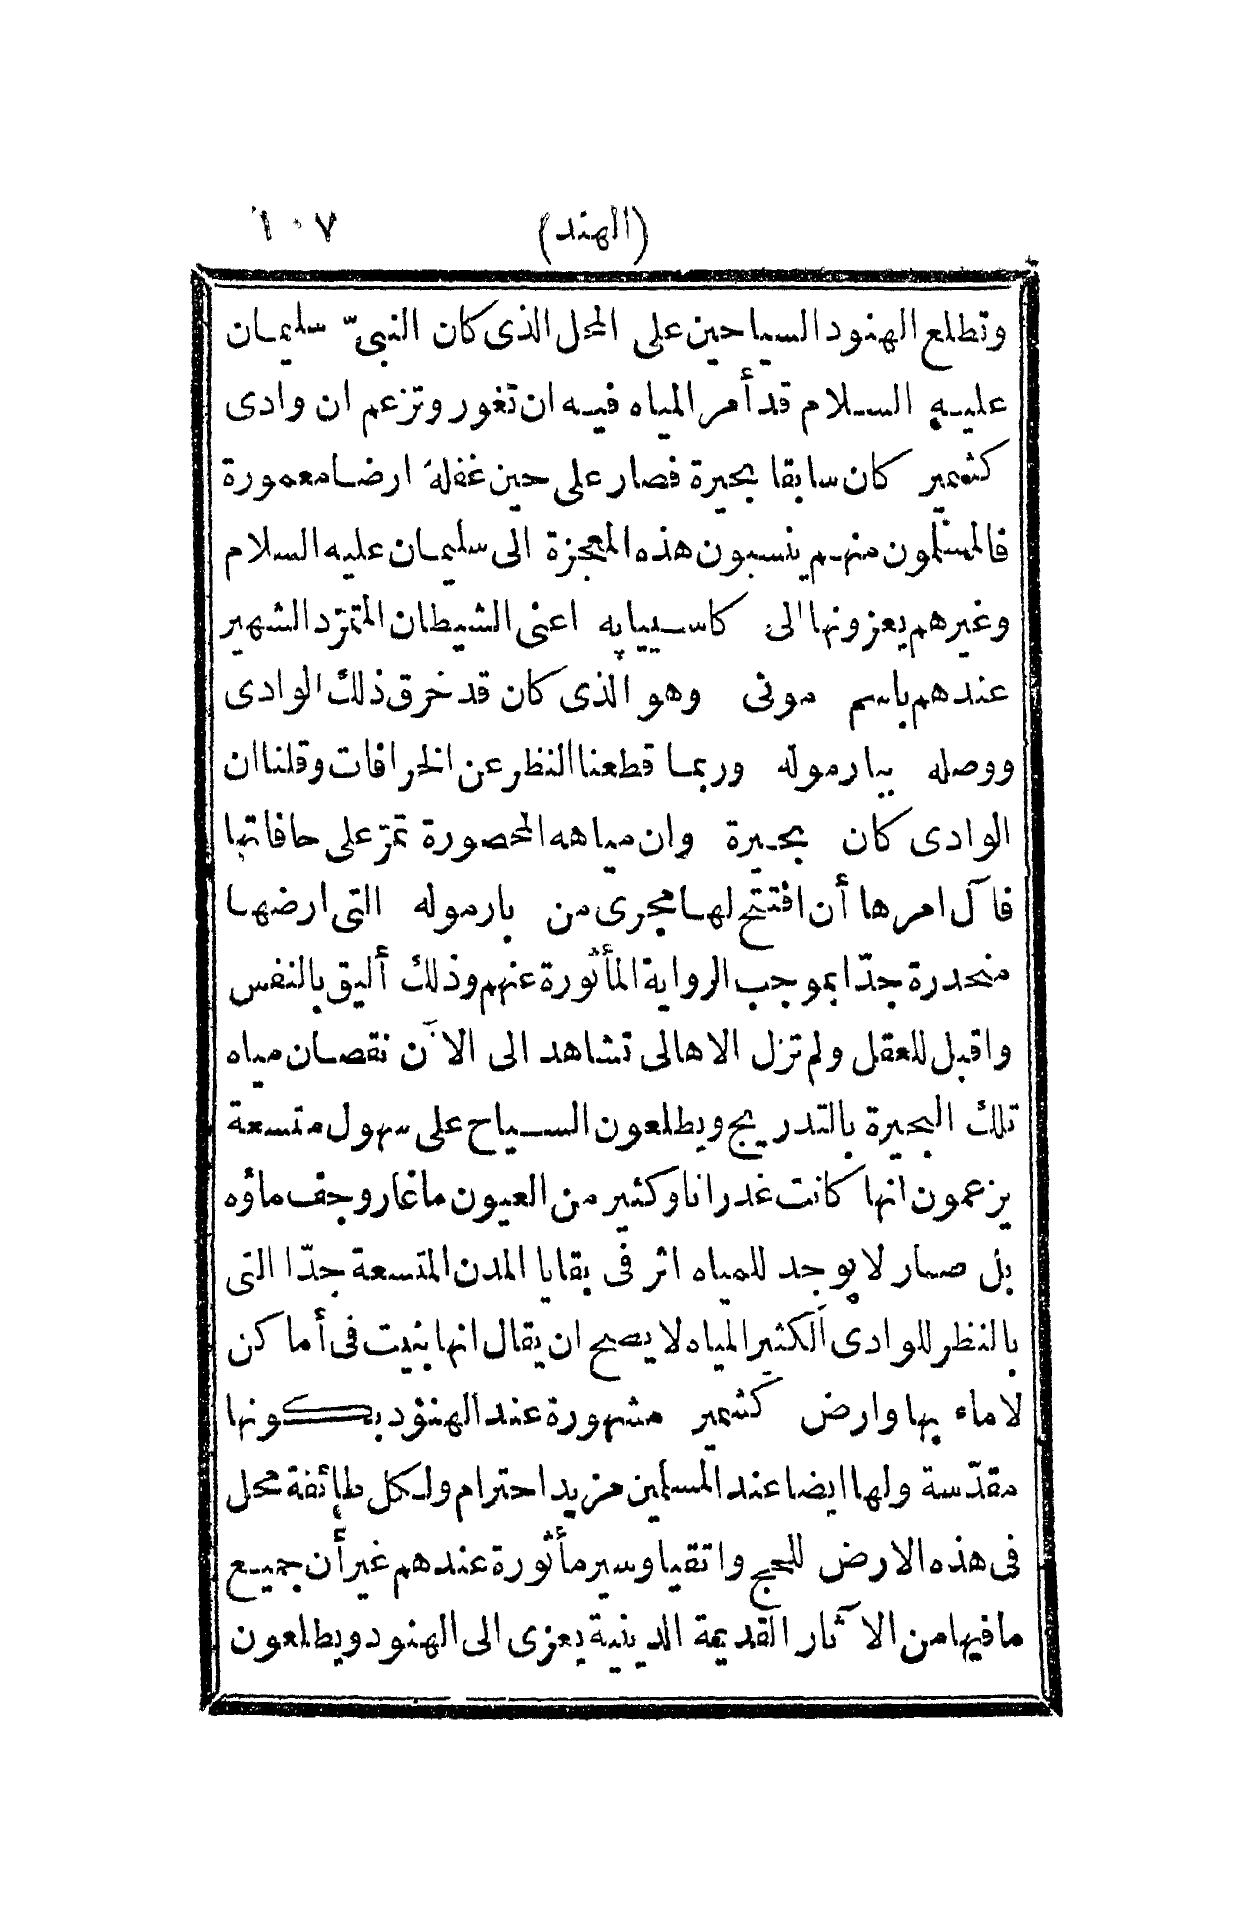 (الهند) ١٠٧
وتطلع الهنود السياحين على المحل الذى كان النبىّ سليمان
عليه السلام قد أمر المياه فيه ان تغور وتزعم ان وادى
كشمير كان سابقا بحيرة فصار على حين غفلة ارضا معمورة
فالمسلمون منهم ينسبون هذه المعجزة الى سليمان عليه السلام
وغيرهم يعزونها الى كاسييپاپه اعنى الشيطان المتمرّد الشهير
عندهم باسم مونى وهو الذى كان قد خرق ذلك الوادى
ووصله ببارموله وربما قطعنا النظر عن الخرافات وقلنا ان
الوادى كان بحيرة وان مياهه المحصورة تمرّ على حافاتها
فآل امرها أن افتتح لها مجرى من بارموله التى ارضها
منحدرة جدّا بموجب الرواية المأثورة عنهم وذلك أليق بالنفس
واقبل للعقل ولم تزل الاهالى تشاهد الى الآن نقصان مياه
تلك البحيرة بالتدريج ويطلعون السياح على سهول متسعة
يزعمون انها كانت غدرانا وكثير من العيون ما غار وجف ماؤه
بل صار لا يوجد للمياه اثر فى بقايا المدن المتسعة جدّا التى
بالنظر للوادى الكثير المياه لا يصح ان يقال انها بنيت فى أماكن
لا ماء بها وارض كشمير مشهورة عند الهنود بكونها
مقدّسة ولها ايضا عند المسلمين مزيد احترام ولكل طائفة محل
فى هذه الارض للحج واتقيا وسير مأثورة عندهم غير أن جميع
ما فيها من الآثار القديمة الدينية يعزى الى الهنود ويطلعون